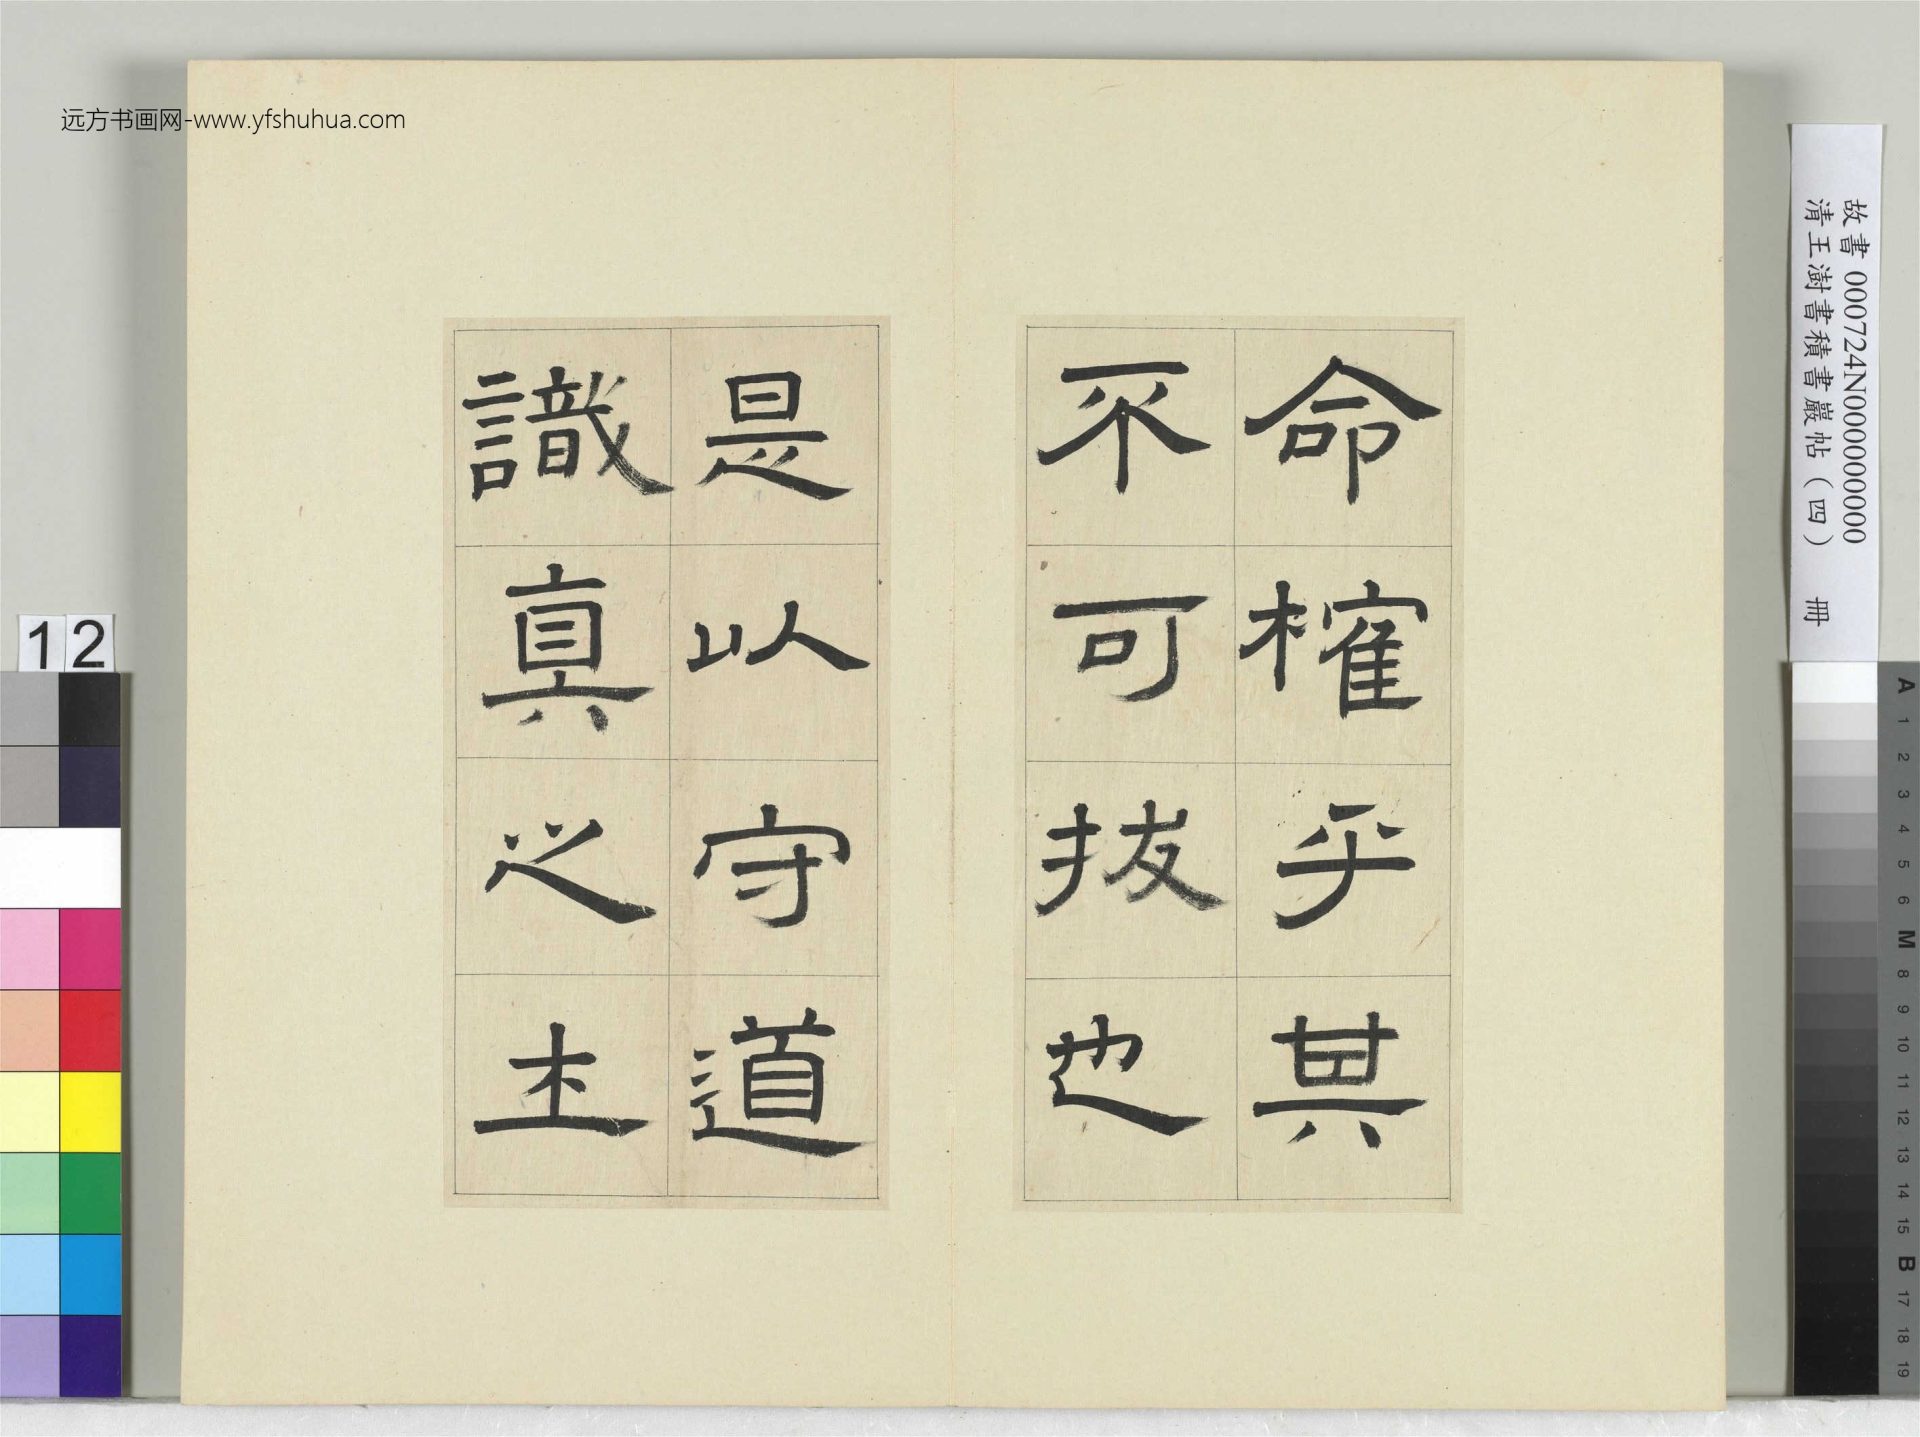 远方书画网-www.yfshuhua.com
故書 000724N000000000
清王澍書積書巖帖（四） 冊
命榷乎其
不可拔也
是以守道
識真之士
12
A
1
2
3
4
5
6
M
8
9
10
11
12
13
14
15
B
17
18
19